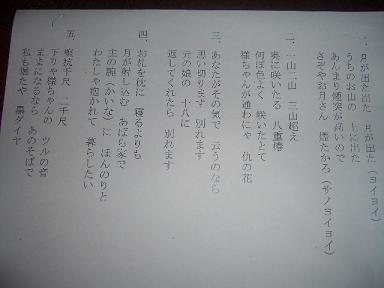 一、月が出た出た　月が出た（ヨイヨイ）
うちのお山の　上に出た
あんまり煙突が高いので
さぞやお月さん　煙たかろ（サノヨイヨイ）
二、一山二山　三山越え
奥に咲いたる　八重椿
何ぼ色よく　咲いたとて
様ちゃんが通わにゃ　仇の花
三、あなたがその気で　云うのなら
思い切ります　別れます
元の娘の　十八に
返してくれたら　別れます
四、お札を枕に　寝るよりも
月が射し込む　あばら家で
主の腕（かいな）に　ほんのりと
わたしゃ抱かれて　暮らしたい
五、竪坑千尺　二千尺
下りゃ様ちゃんの　ツルの音
ままになるなら　あのそばで
私も掘たや　黒ダイヤ